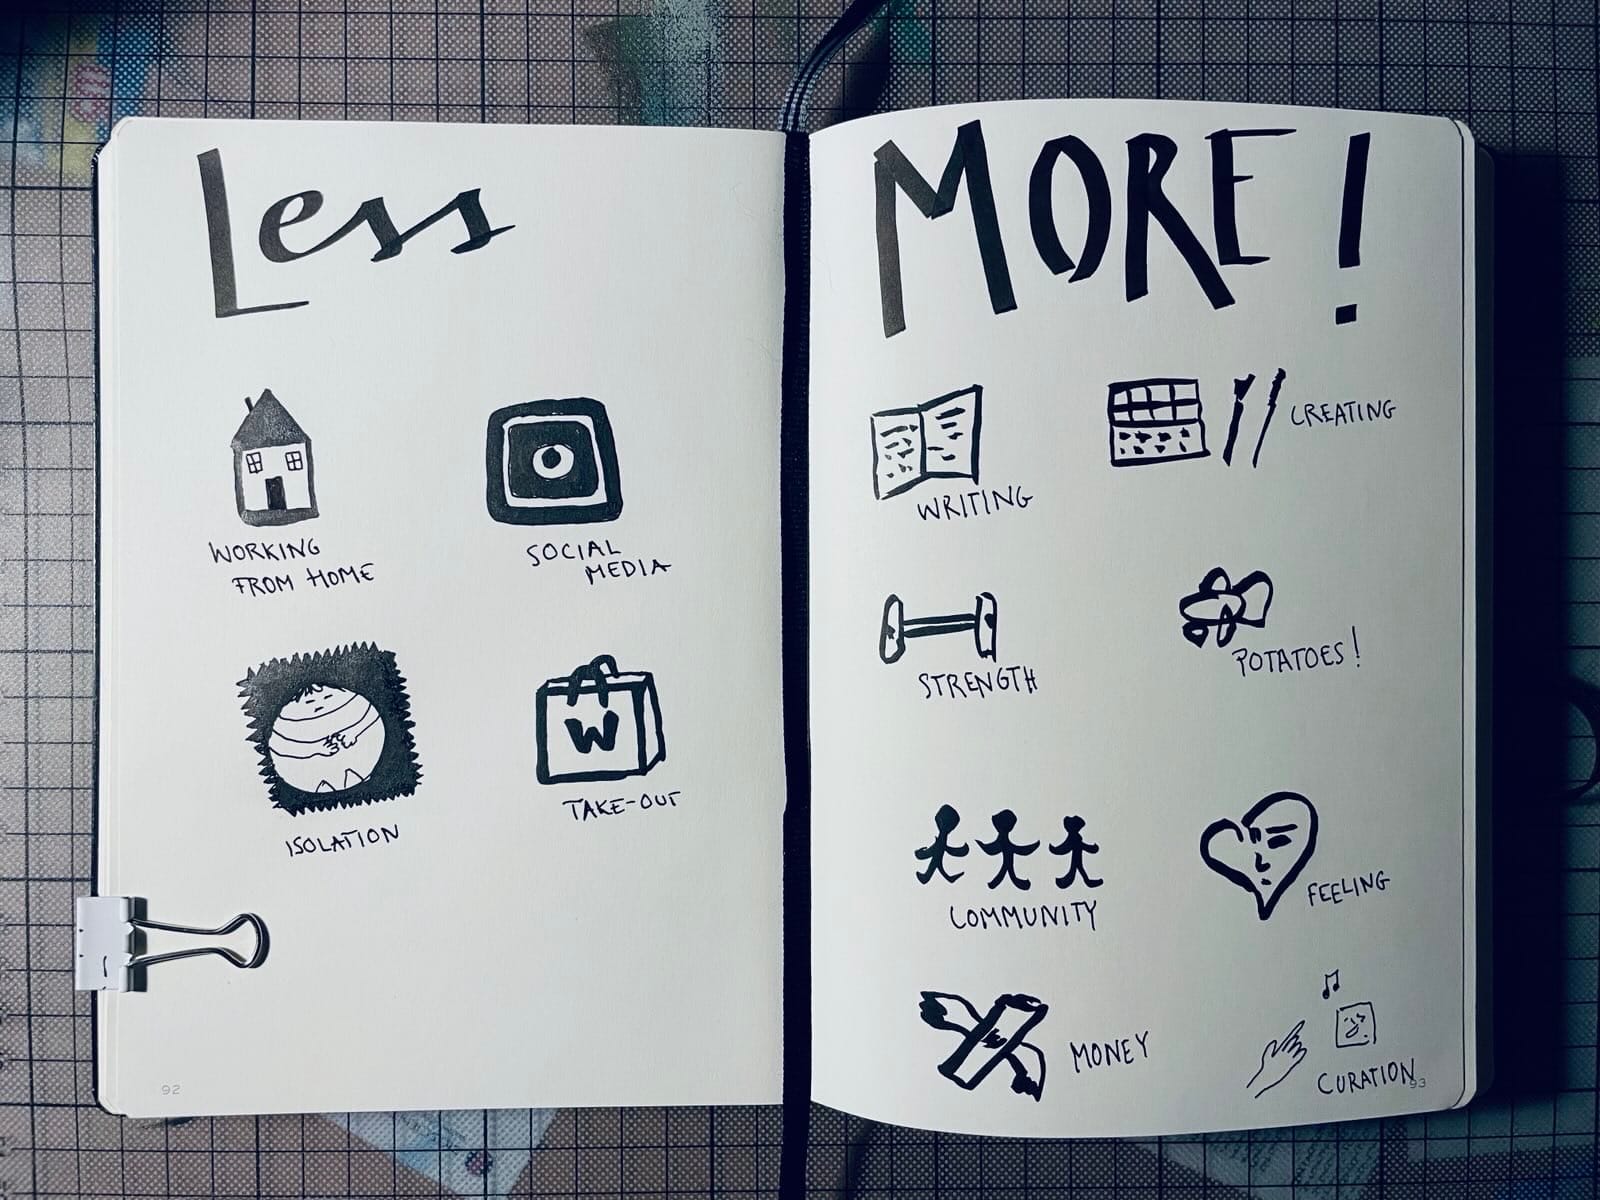 Less
WORKING
FROM HOME
SOCIAL
MEDIA
ISOLATION
W
TAKE-OUT
92
MORE!
WRITING
CREATING
STRENGTH
POTATOES!
COMMUNITY
FEELING
MONEY
CURATION
93